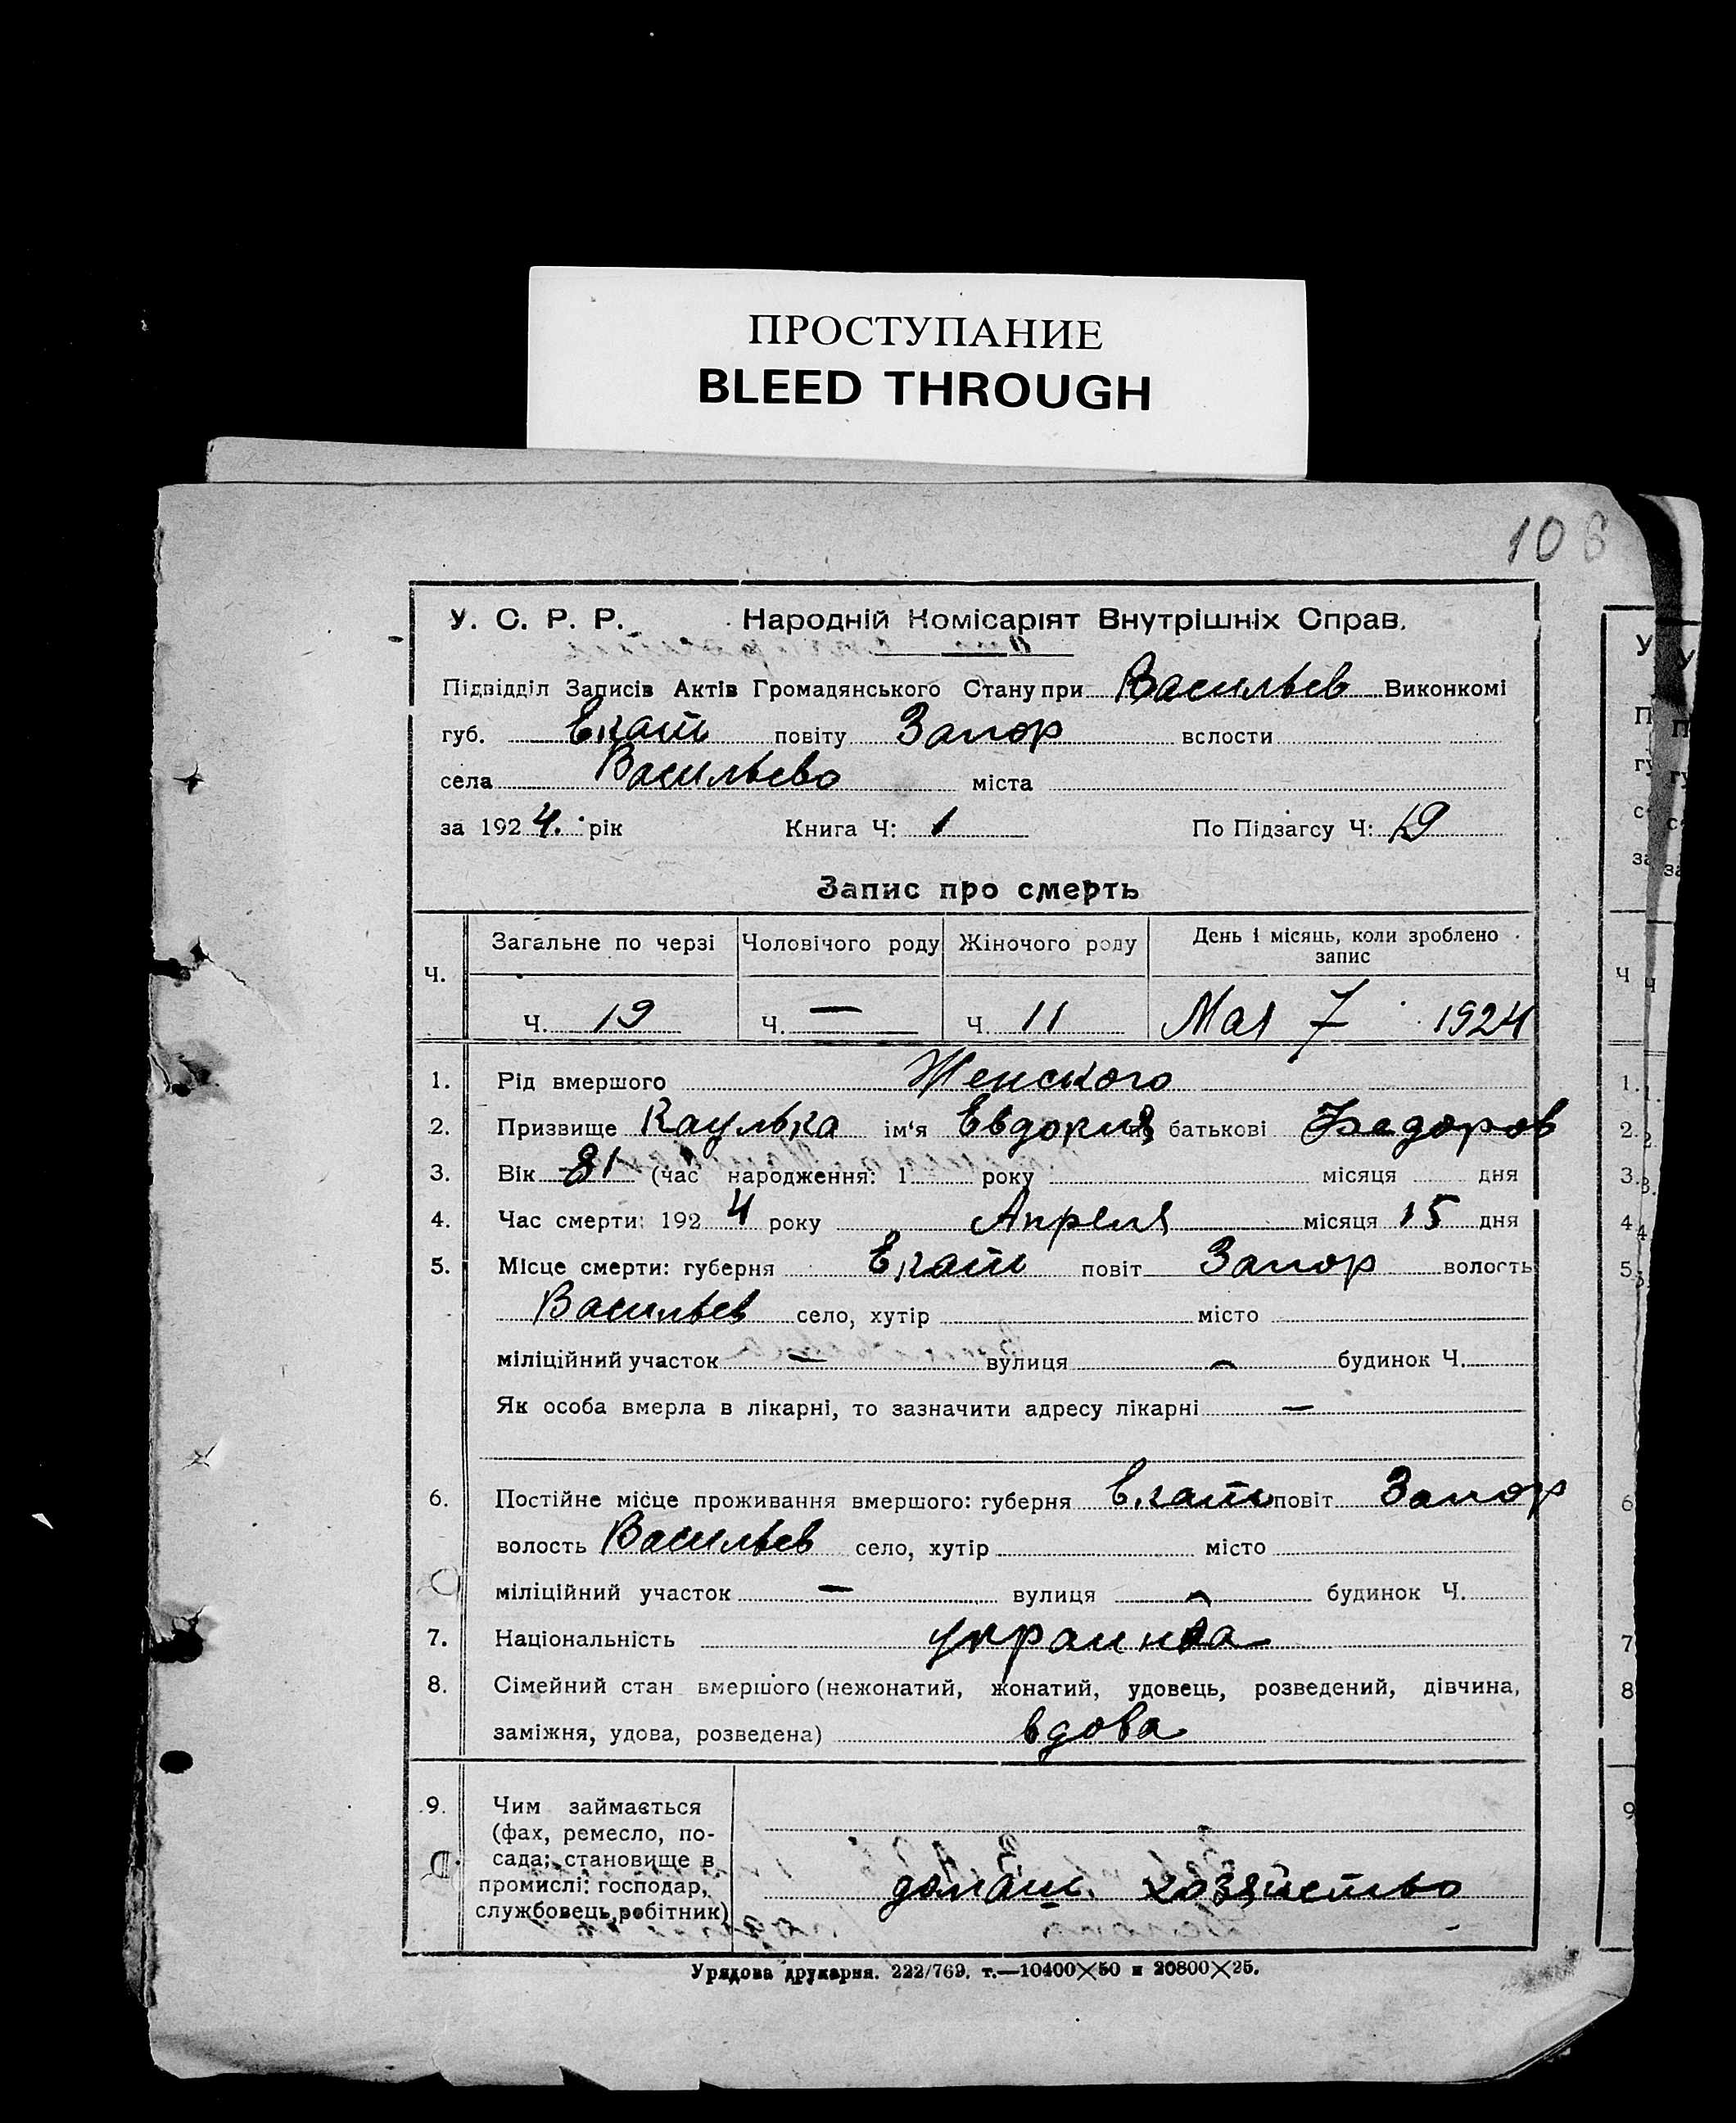 ПРОСТУПАНИЕ
BLEED THROUGH
108
У. С. Р. Р. Народній Комісаріят Внутрішніх Справ.
Підвідділ Записів Актів Громадянського Стану при Васильев Виконкомі
губ. Екат повіту Запор вслости
села Васильево міста
за 1924. рік Книга Ч: 1 По Підзагсу Ч: 19
Запис про смерть
Ч. Загальне по черзі Чоловічого роду Жіночого роду День і місяць, коли зроблено запис
Ч. 19 Ч. — Ч. 11 Мая 7 1924
1. Рід вмершого Женского
2. Призвище Каулька ім'я Евдокия по батькові Федоров
3. Вік 81 (час народження: 1 року місяця дня
4. Час смерти: 1924 року Апреля місяця 15 дня
5. Місце смерти: губерня Екат повіт Запор волость
Васильев село, хутір місто
міліційний участок — вулиця — будинок Ч.
Як особа вмерла в лікарні, то зазначити адресу лікарні —
6. Постійне місце проживання вмершого: губерня Екат повіт Запор
волость Васильев село, хутір місто
міліційний участок — вулиця — будинок Ч.
7. Національність украинка
8. Сімейний стан вмершого (нежонатий, жонатий, удовець, розведений, дівчина,
заміжня, удова, розведена) вдова
9. Чим займається
(фах, ремесло, по-
сада; становище в
промислі: господар,
службовець, робітник)
домаш. хозяйство
Урядова друкарня. 222/769. т.—10400×50 и 20800×25.